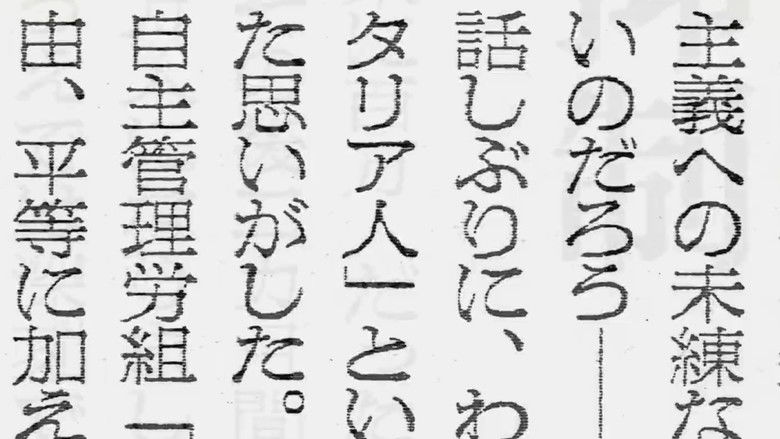 主義への未練な
いのだろう──
話しぶりに、わ
タリア人」とい
た思いがした。
自主管理労組「
由、平等に加え